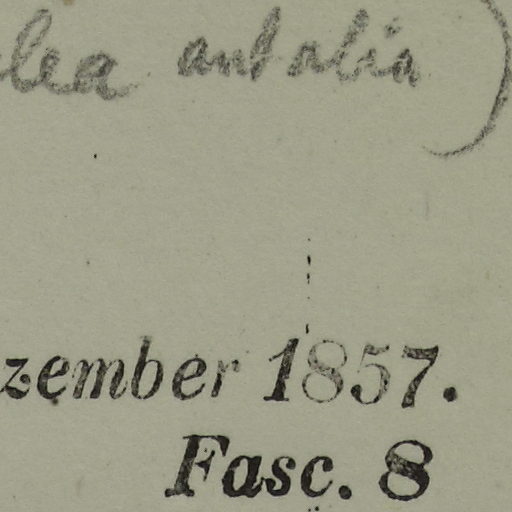 lea antalia)
zember 1857.
Fasc. 8